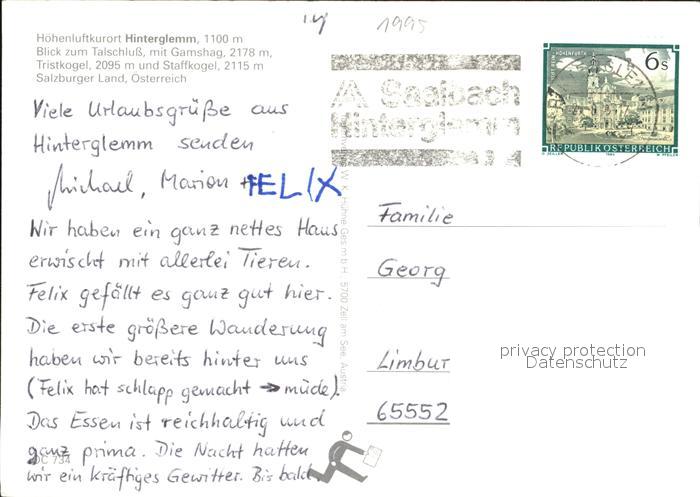 1995
Höhenluftkurort Hinterglemm, 1100 m
Blick zum Talschluß, mit Gamshag, 2178 m,
Tristkogel, 2095 m und Staffkogel, 2115 m
Salzburger Land, Österreich
Viele Urlaubsgrüße aus
Hinterglemm senden
Michael, Marion + FELIX
Wir haben ein ganz nettes Haus
erwischt mit allerlei Tieren.
Felix gefällt es ganz gut hier.
Die erste größere Wanderung
haben wir bereits hinter uns
(Felix hat schlapp gemacht → müde).
Das Essen ist reichhaltig und
ganz prima. Die Nacht hatten
wir ein kräftiges Gewitter. Bis bald.
734
Saalbach
Hinterglemm
6 s
REPUBLIK ÖSTERREICH
5700 Zell am See, Austria
Familie
Georg
Limbur
65552
privacy protection
Datenschutz